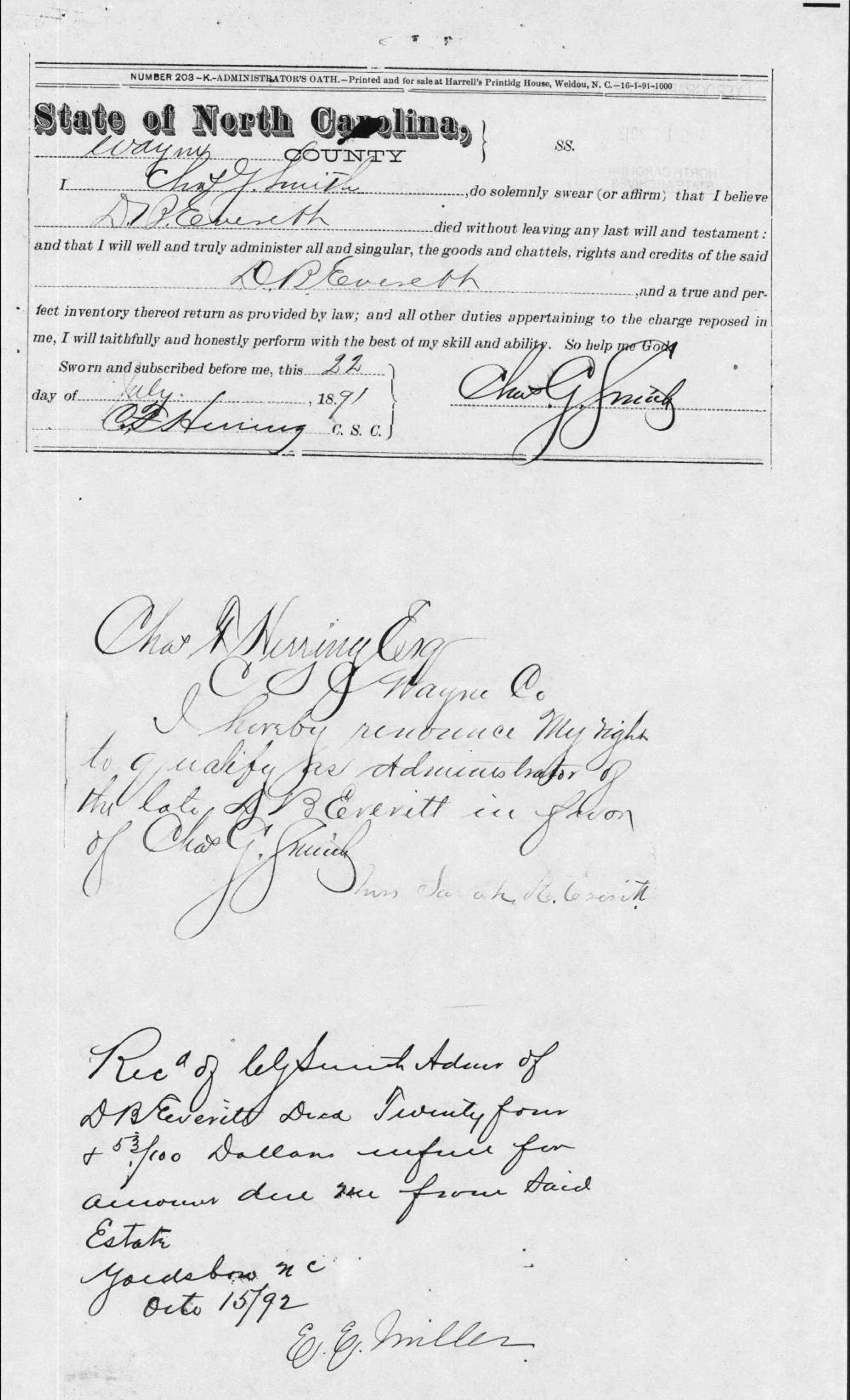 NUMBER 203—K.—ADMINISTRATOR'S OATH.—Printed and for sale at Harrell's Printidg House, Weldou, N. C.—16-1-91-1000
State of North Carolina,
Wayne COUNTY } SS.
I Chas G. Smith, do solemnly swear (or affirm) that I believe
D. B. Evereth died without leaving any last will and testament:
and that I will well and truly administer all and singular, the goods and chattels, rights and credits of the said
D. B. Evereth, and a true and per-
fect inventory thereof return as provided by law; and all other duties appertaining to the charge reposed in
me, I will faithfully and honestly perform with the best of my skill and ability. So help me God.
Sworn and subscribed before me, this 22
day of July, 1891
Chas. G. Smith
Herring C. S. C.
Chas F Herring Esq
C S C Wayne Co
I hereby renounce My right
to qualify as Administrator of
the late D B Everitt in favor
of Chas G. Smith
Mrs Sarah Everitt
Recd of C G Smith Admr of
D B Everitt Decd Twenty four
& 53/100 Dollars in full for
amount due me from Said
Estate
Goldsboro N C
Octo 15/92
E. E. Miller